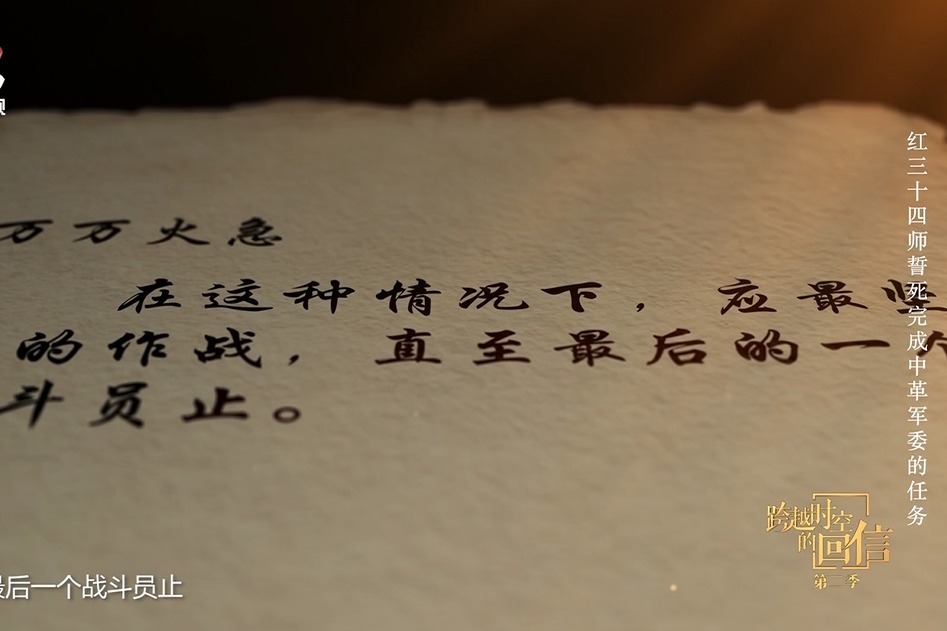 万万火急
在这种情况下，应最坚
的作战，直至最后的一个
斗员止。
红三十四师誓死完成中革军委的任务
跨越时空
的回信
第二季
最后一个战斗员止